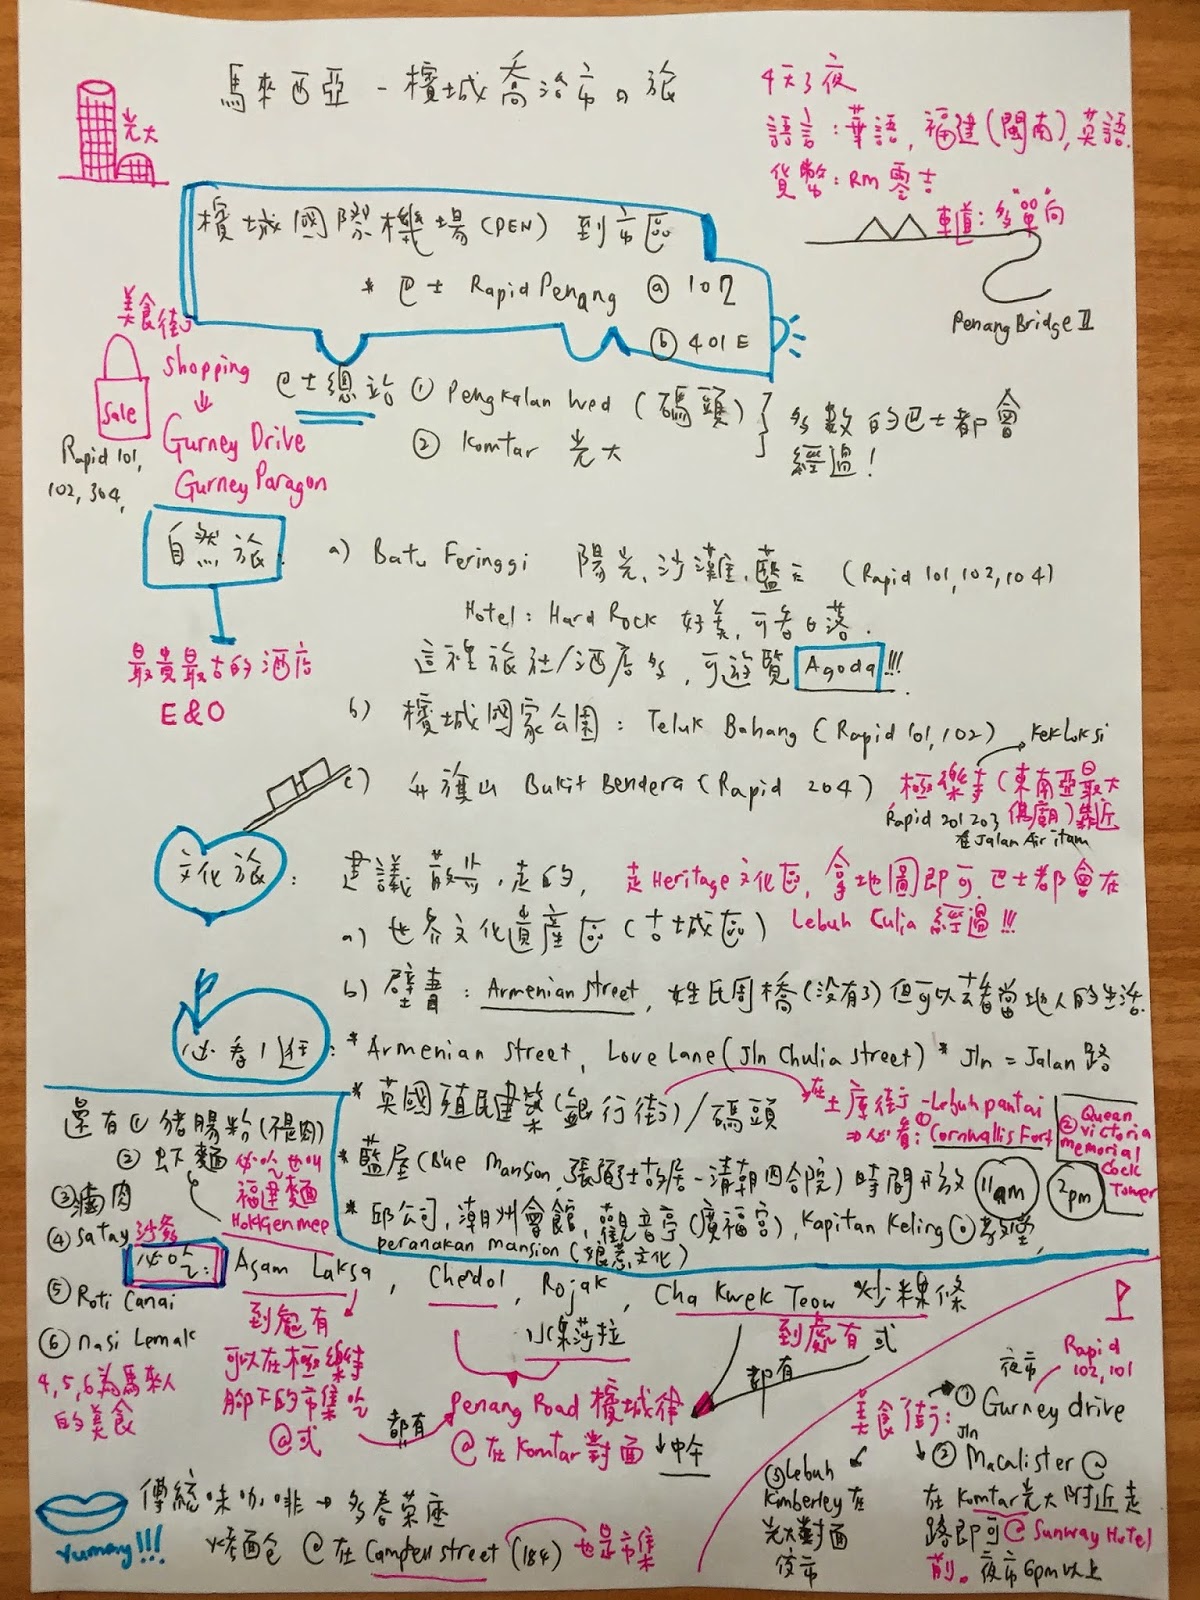 馬來西亞 - 檳城喬治市の旅
光大
4天3夜
語言：華語, 福建(閩南), 英語.
貨幣：RM 零吉
車道：多"單"向
Penang Bridge II
檳城國際機場(PEN) 到市區
* 巴士 Rapid Penang ⓐ 102
ⓑ 401E
美食街
Shopping
Sale
Gurney Drive
Gurney Paragon
Rapid 101,
102, 304,
巴士總站 ① Pengkalan Wed (碼頭)
② Komtar 光大
多數的巴士都會
經過!
自然旅：
a) Batu Feringgi 陽光、沙灘、藍天 (Rapid 101, 102, 104)
Hotel: Hard Rock 好美, 可看日落.
這裡旅社/酒店多, 可遊覽 Agoda !!!
最貴最古的酒店
E&O
b) 檳城國家公園：Teluk Bahang (Rapid 101, 102)
c) 升旗山 Bukit Bendera (Rapid 204)
Kek Lok Si
極樂寺 (東南亞最大
佛廟) 靠近
Rapid 201 203
在 Jalan Air itam
文化旅：
建議散步, 走的, 走Heritage文化區, 拿地圖即可, 巴士都會在
Lebuh Culia 經過!!!
a) 世界文化遺產區 (古城區)
b) 壁畫：Armenian Street, 姓氏周橋(沒有了)但可以去看當地人的生活.
必看/逛：
* Armenian Street, Love Lane (Jln Chulia Street) * Jln = Jalan 路
* 英國殖民建築(銀行街)/碼頭
在土庫街 - Lebuh pantai
⇒必看：① Cornwallis Fort
② Quean
victoria
memorial
Cock
Tower
* 藍屋(Blue Mansion, 張弼士故居-清朝四合院) 時間開放 11am 2pm
* 邱公司, 潮州會館, 觀音亭(廣福宮), Kapitan Keling 教堂,
peranakan mansion (娘惹文化)
還有 ① 豬腸粉(不是肉)
② 蝦麵
必吃 也叫
福建麵
Hokkien mee
③ 滷肉
④ Satay 沙爹
⑤ Roti Canai
⑥ Nasi Lemak
4,5,6為馬來人
的美食
必吃：
Asam Laksa, Chendol, Rojak, Cha Kwek Teow 炒粿條
水果莎拉
到處有
可以在極樂寺
腳下的市集吃
@或
都有
到處有 或
都有
Penang Road 檳城律
@ 在 Komtar 對面 ↓中午
夜市
Rapid
102, 101
美食街：① Gurney drive
Jln
② Macalister @
在 Komtar 光大附近走
路即可 @ Sunway Hotel
前。夜市 6pm以上
③ Lebuh
Kimberley 在
光大對面
夜市
傳統味咖啡 → 多春茶座
烤面包 @ 在 Campbell street (184) 也是市集
Yummy!!!